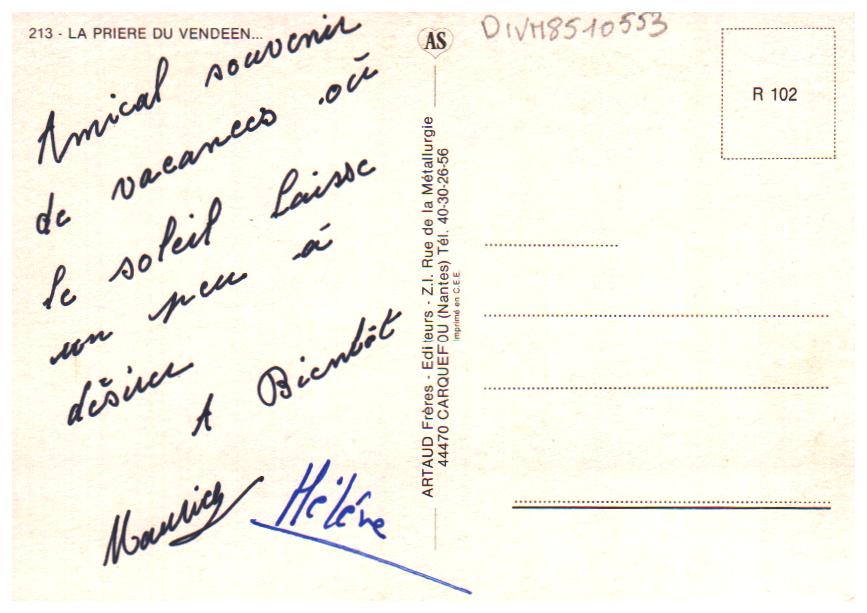 213 - LA PRIERE DU VENDEEN...
Amical souvenir
de vacances où
le soleil laisse
un peu à
désirer
A Bientôt
Maurice
Hélène
AS
ARTAUD Frères - Editeurs - Z.I. Rue de la Métallurgie
44470 CARQUEFOU (Nantes) Tél. 40-30-26-56
Imprimé en C.E.E.
DIVH8510553
R 102